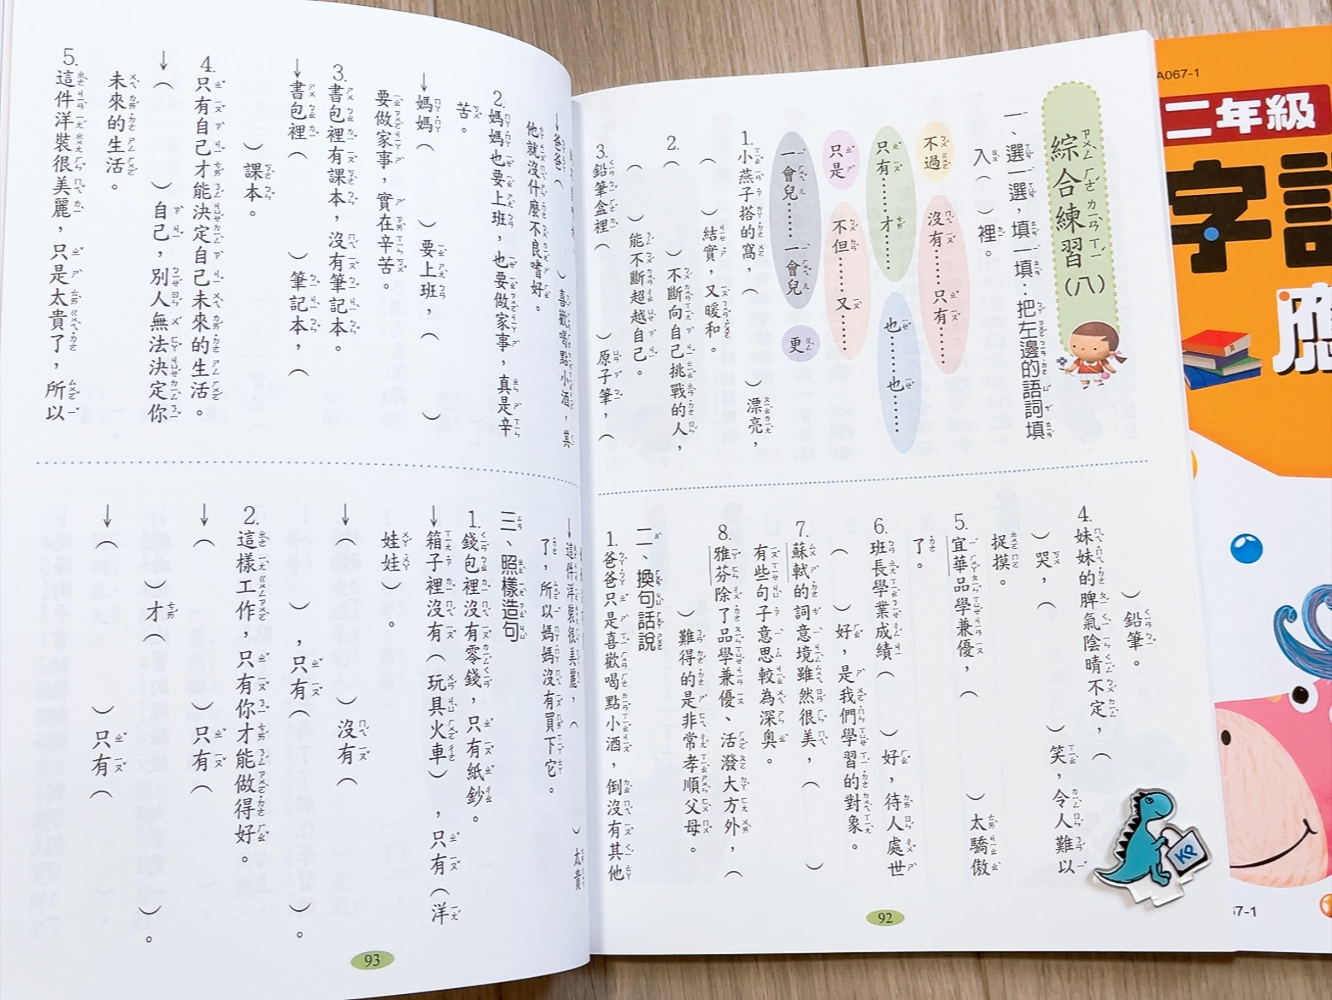 綜合練習(八)
一、選一選，填一填：把左邊的語詞填
入( )裡。
不過
沒有……只有……
只有……才……
也……也……
只是
不但……又……
一會兒……一會兒
更
1.小燕子搭的窩，( )漂亮，
( )結實，又暖和。
2.( )不斷向自己挑戰的人，
( )能不斷超越自己。
3.鉛筆盒裡( )原子筆，(
)鉛筆。
4.妹妹的脾氣陰晴不定，(
)哭，( )笑，令人難以
捉摸。
5.宜華品學兼優，( )太驕傲
了。
6.班長學業成績( )好，待人處世
( )好，是我們學習的對象。
7.蘇軾的詞意境雖然很美，( )
有些句子意思較為深奧。
8.雅芬除了品學兼優、活潑大方外，(
)難得的是非常孝順父母。
二、換句話說
1.爸爸只是喜歡喝點小酒，倒沒有其他
92
→爸爸( )喜歡喝點小酒，其
他就沒什麼不良嗜好。
2.媽媽也要上班，也要做家事，真是辛
苦。
→媽媽( )要上班，( )
要做家事，實在辛苦。
3.書包裡有課本，沒有筆記本。
→書包裡( )筆記本，(
)課本。
4.只有自己才能決定自己未來的生活。
→( )自己，別人無法決定你
未來的生活。
5.這件洋裝很美麗，只是太貴了，所以
→這件洋裝很美麗，( )太貴
了，所以媽媽沒有買下它。
三、照樣造句
1.錢包裡沒有零錢，只有紙鈔。
→箱子裡沒有(玩具火車)，只有(洋
娃娃)。
→( )沒有(
)，只有( )。
2.這樣工作，只有你才能做得好。
→( )只有(
)才( )。
→( )只有(
93
A067-1
二年級
字
應
KP
67-1